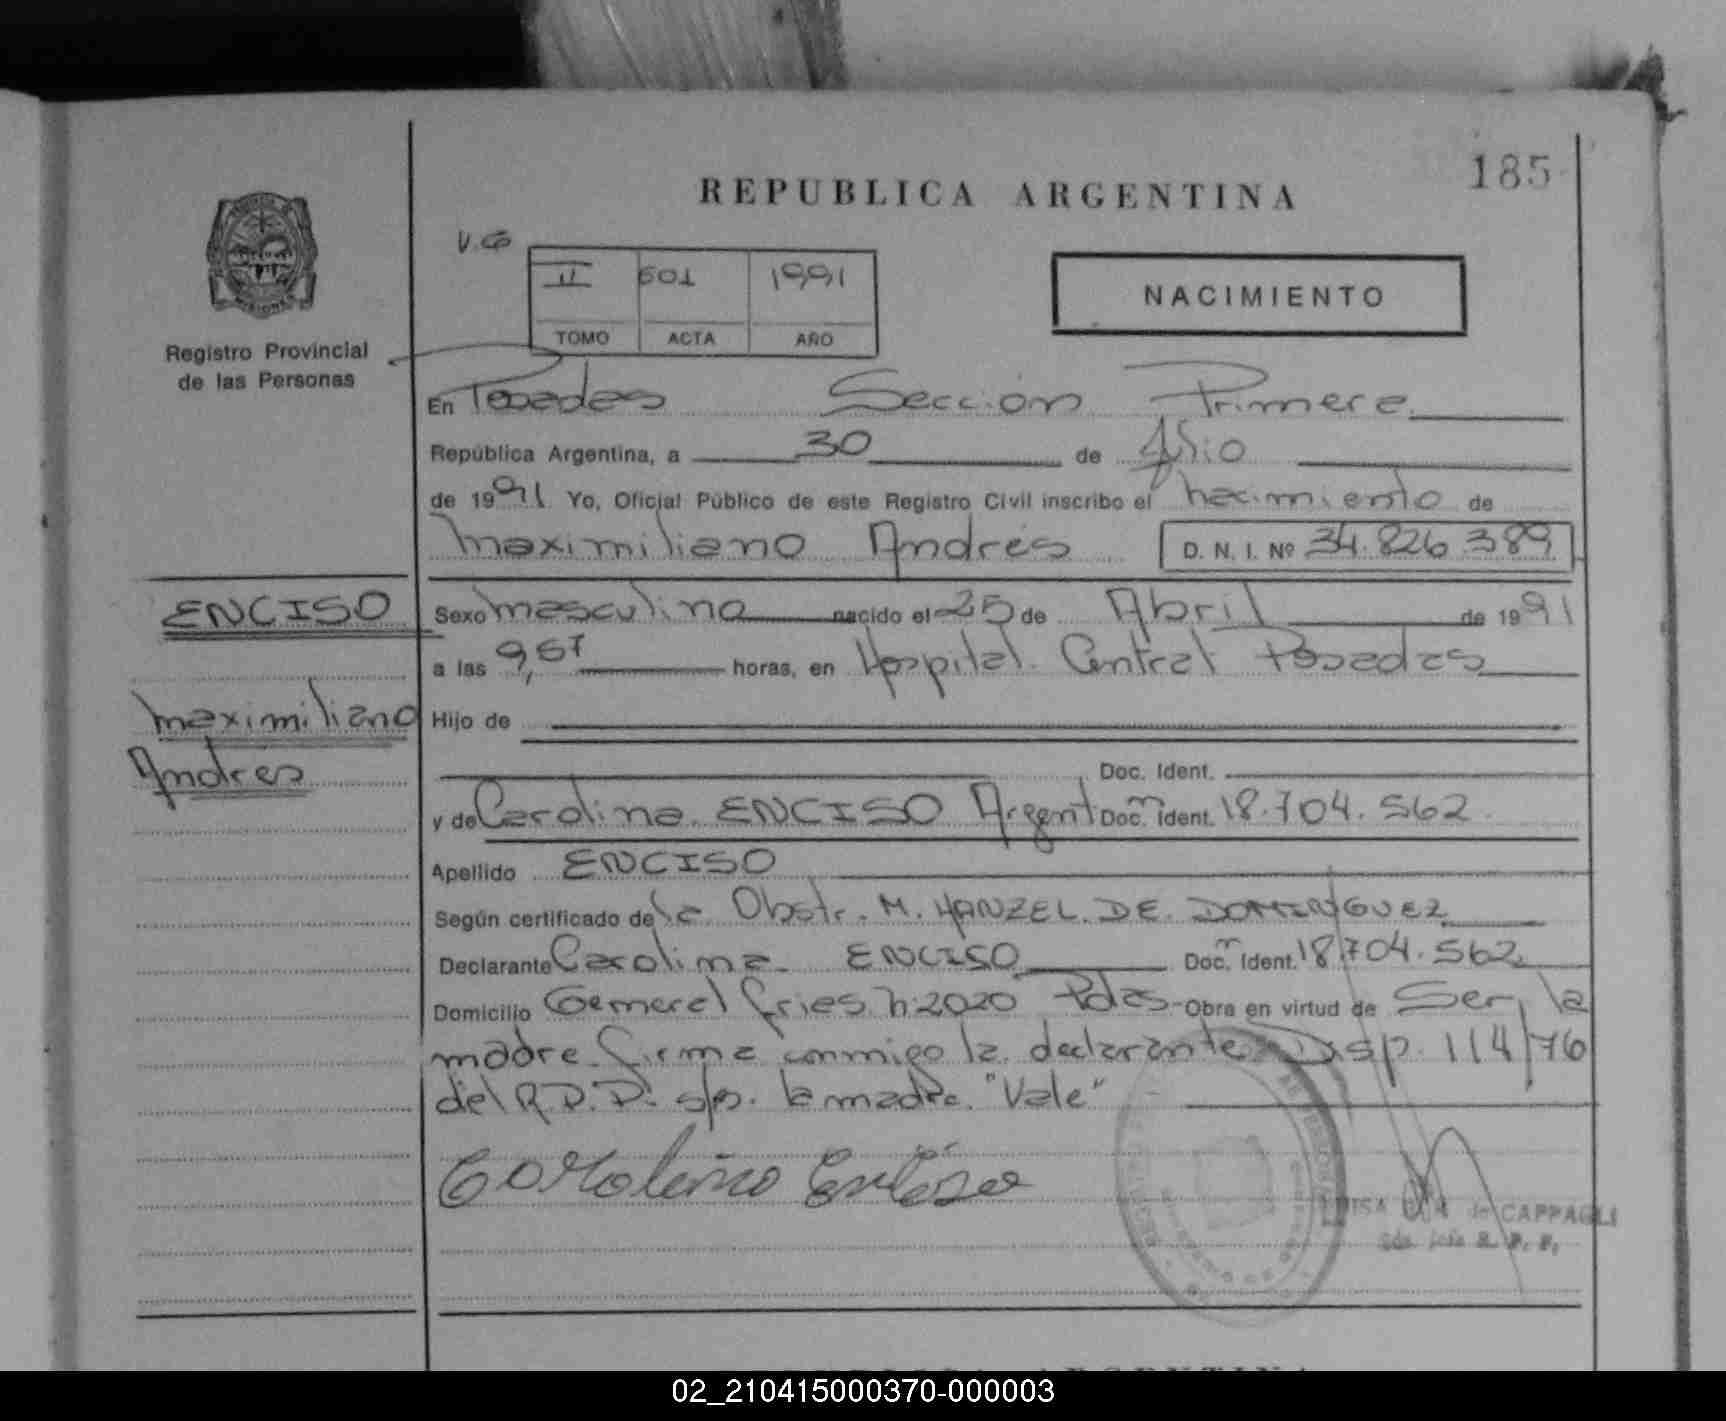 185
REPUBLICA ARGENTINA
II 601 1991
TOMO ACTA AÑO
NACIMIENTO
Registro Provincial
de las Personas
En Posadas Sección Primera
República Argentina, a 30 de Julio
de 1991 Yo, Oficial Público de este Registro Civil inscribo el nacimiento de
Maximiliano Andrés D. N. I. Nº 34.826.389
ENCISO
Maximiliano
Andres
Sexo masculino nacido el 25 de Abril de 1991
a las 9,57 horas, en Hospital Central Posadas
Hijo de
Doc. Ident.
y de Carolina ENCISO Argent Doc. Ident. 18.704.562
Apellido ENCISO
Según certificado de la Obstr. M. HANZEL DE DOMINGUEZ
Declarante Carolina ENCISO Doc. Ident. 18.704.562
Domicilio General fries n: 2020 Pdas- Obra en virtud de Ser la
madre firma conmigo la declarante Disp. 114/76
del R.P.P. s/p. la madre. "Vale"
Carolina Enciso
de CAPPAGLI
02_210415000370-000003